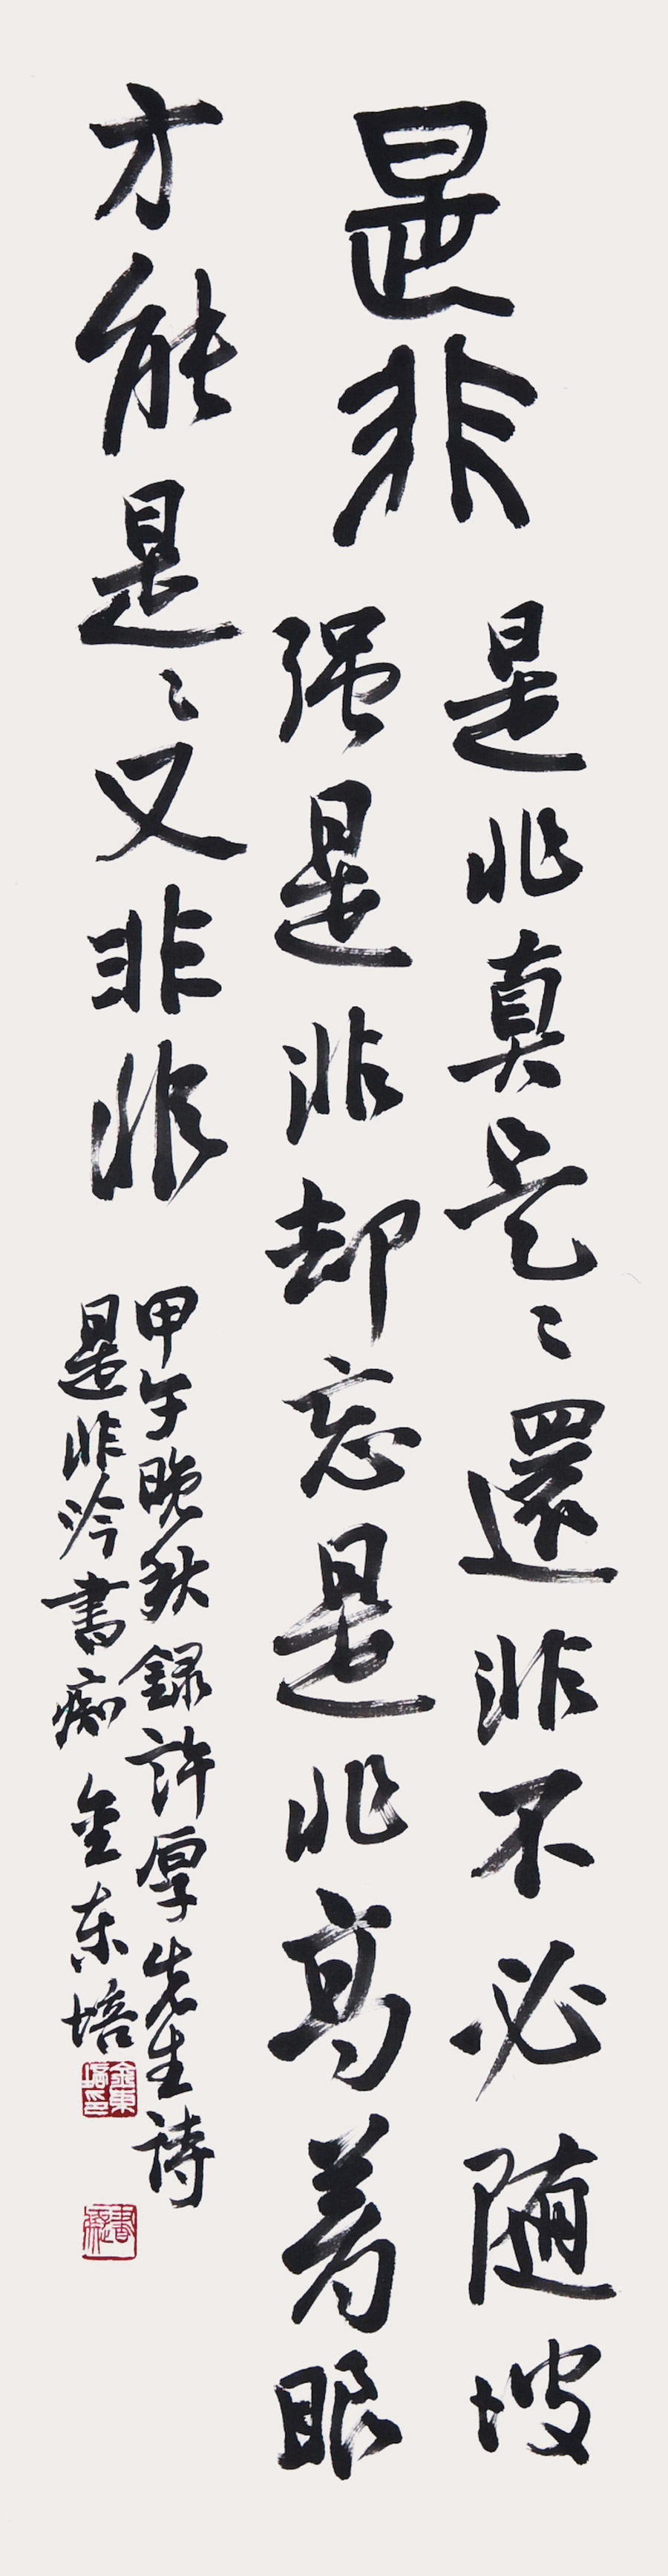 是非
是非真是〻還非不必随坡
强是非却忘是非高着眼
方能是〻又非非
甲午晚秋録許厚先生詩
是非吟書痴金东培
金東培印
書癡